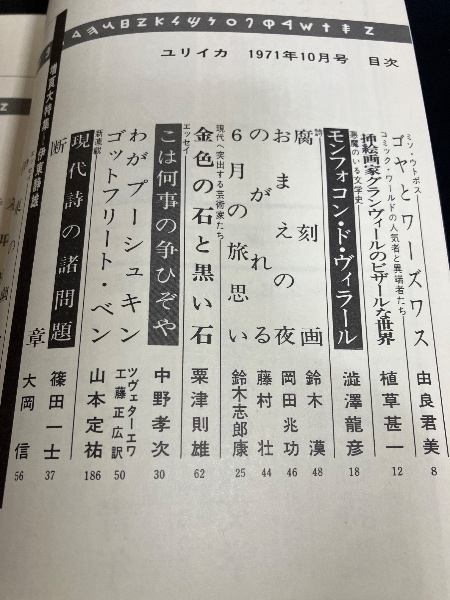 ユリイカ 1971年10月号 目次
ミソ・ウトポス
ゴヤとワーズワス 由良君美 8
コミック・ワールドの人気者と異端者たち
挿絵画家グランヴィールのビザールな世界 植草甚一 12
悪魔のいる文学史
モンフォコン・ド・ヴィラール 澁澤龍彦 18
詩
腐刻画 鈴木漠 48
おまえの夜 岡田兆功 46
のがれる 藤村壮 44
6月の旅思い 鈴木志郎康 25
現代へ突出する芸術家たち
金色の石と黒い石 粟津則雄 62
エッセイ
こは何事の争ひぞや 中野孝次 30
わがプーシュキン ツヴェターエワ 工藤正広訳 50
ゴットフリート・ベン 山本定祐 186
新連載
現代詩の諸問題 篠田一士 37
断章 大岡信 56
増頁大特集 伊東静雄